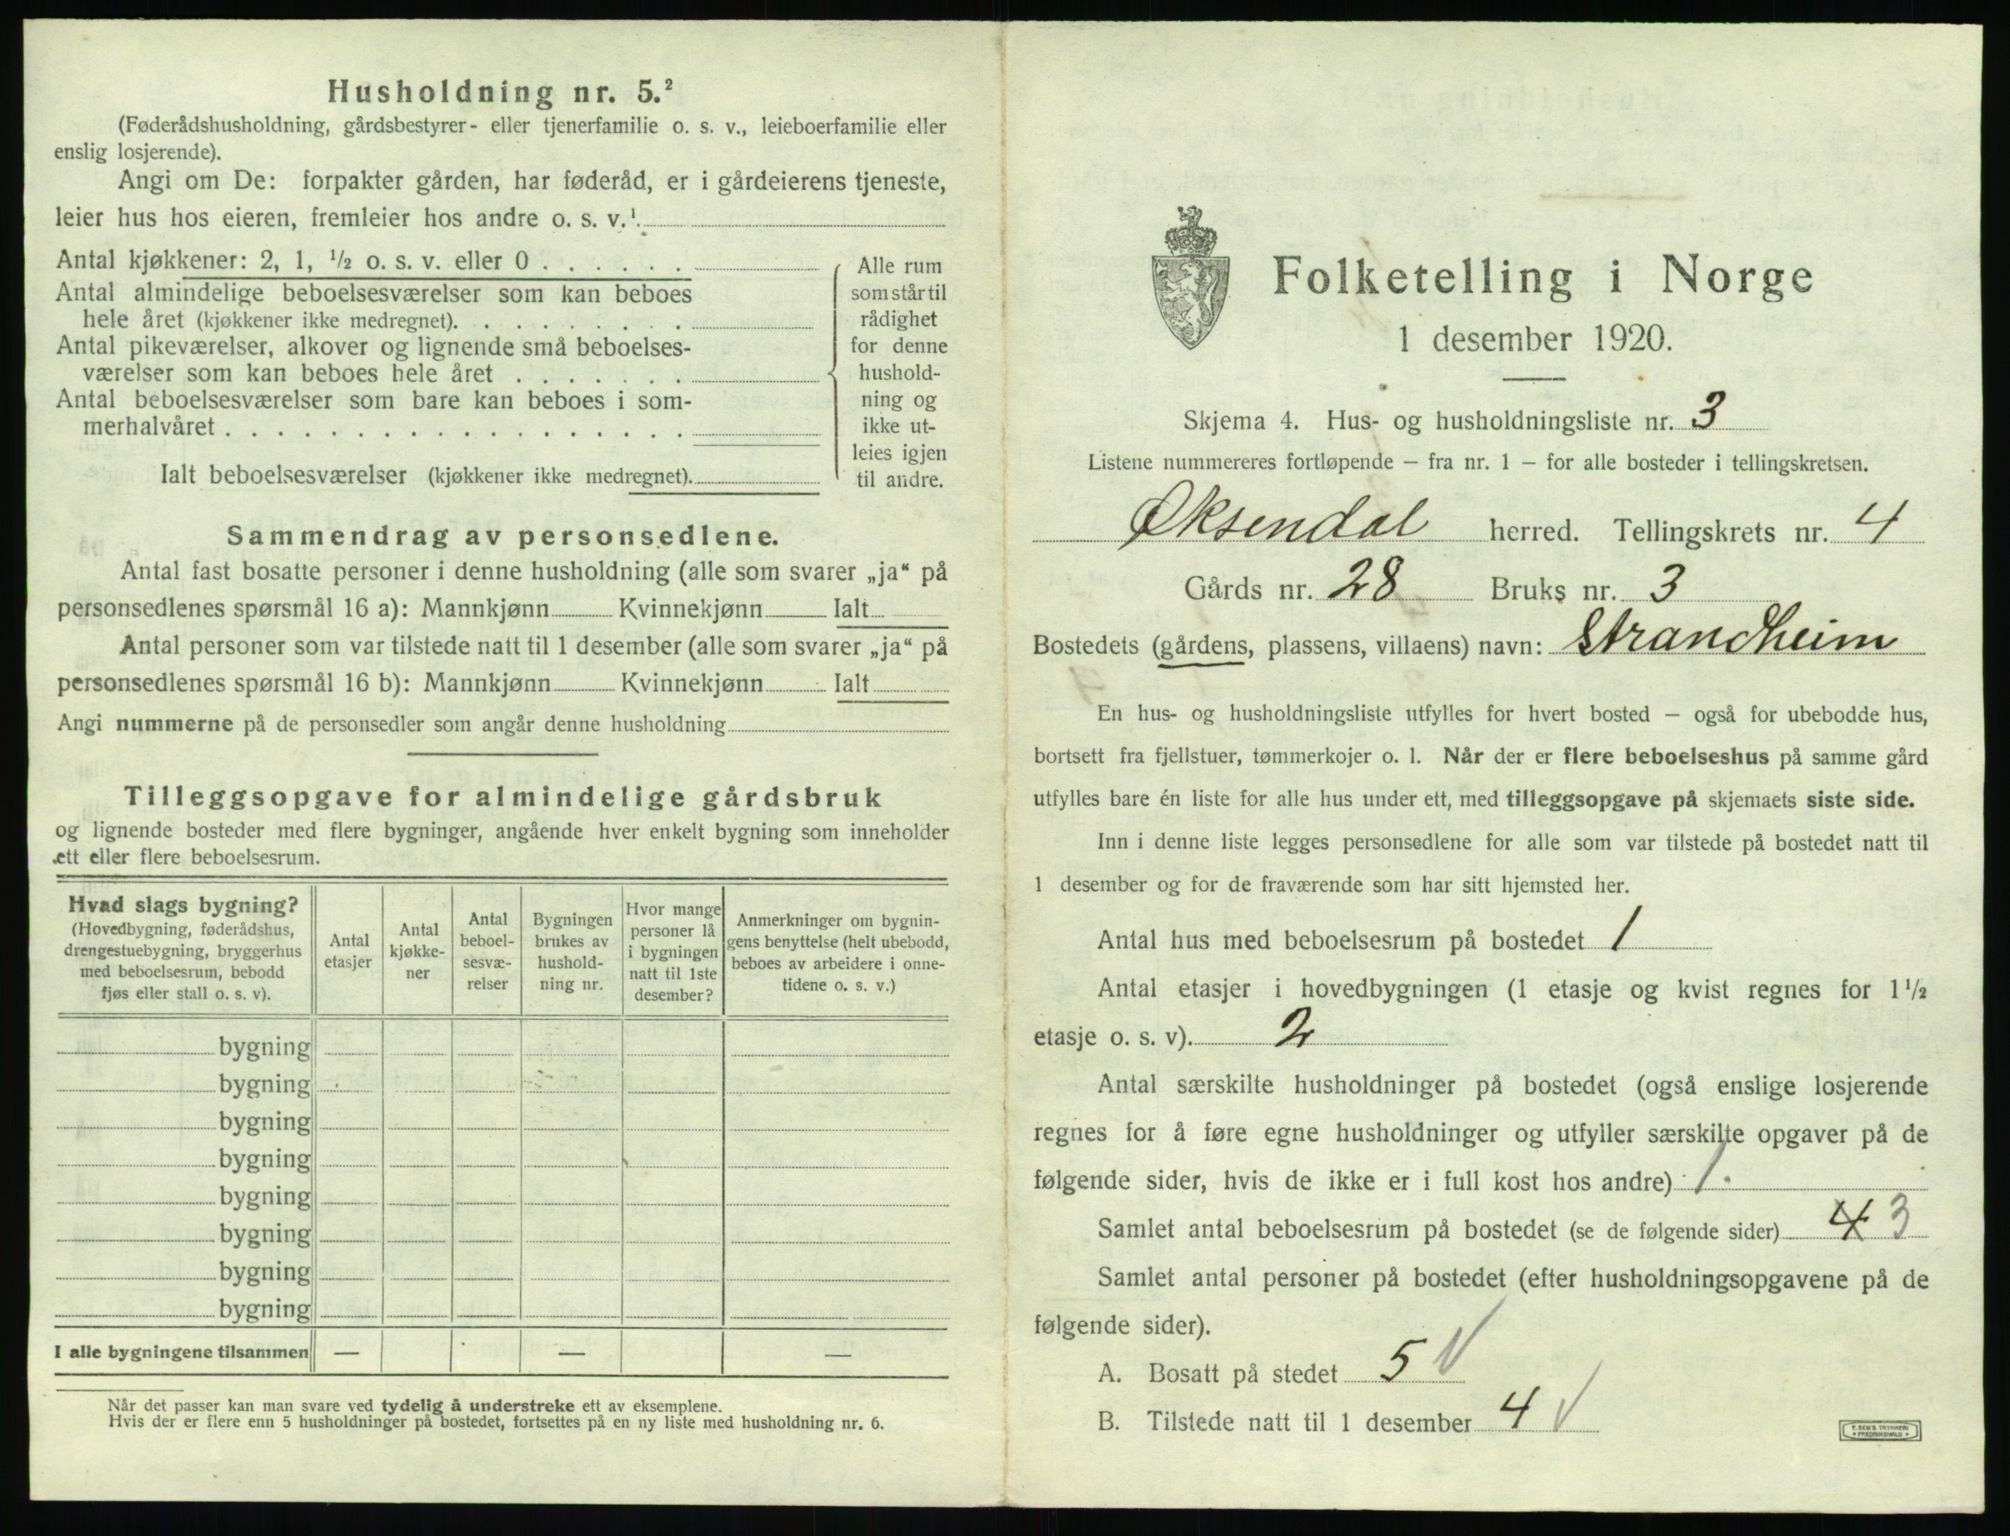 Husholdning nr. 5.²
(Føderådshusholdning, gårdsbestyrer- eller tjenerfamilie o. s. v., leieboerfamilie eller
enslig losjerende).
Angi om De: forpakter gården, har føderåd, er i gårdeierens tjeneste,
leier hus hos eieren, fremleier hos andre o. s. v.¹
Antal kjøkkener: 2, 1, ½ o. s. v. eller 0 . . . . . .
Antal almindelige beboelsesværelser som kan beboes
hele året (kjøkkener ikke medregnet). . . . . . . . .
Antal pikeværelser, alkover og lignende små beboelses-
værelser som kan beboes hele året . . . . . . .
Antal beboelsesværelser som bare kan beboes i som-
merhalvåret . . . . . . . . . . . . . . . . . .
Ialt beboelsesværelser (kjøkkener ikke medregnet).
Alle rum
som står til
rådighet
for denne
hushold-
ning og
ikke ut-
leies igjen
til andre.
Sammendrag av personsedlene.
Antal fast bosatte personer i denne husholdning (alle som svarer „ja“ på
personsedlenes spørsmål 16 a): Mannkjønn Kvinnekjønn Ialt
Antal personer som var tilstede natt til 1 desember (alle som svarer „ja“ på
personsedlenes spørsmål 16 b): Mannkjønn Kvinnekjønn Ialt
Angi nummerne på de personsedler som angår denne husholdning
Tilleggsopgave for almindelige gårdsbruk
og lignende bosteder med flere bygninger, angående hver enkelt bygning som inneholder
ett eller flere beboelsesrum.
Hvad slags bygning?
(Hovedbygning, føderådshus,
drengestuebygning, bryggerhus
med beboelsesrum, bebodd
fjøs eller stall o. s. v).
Antal
etasjer
Antal
kjøkke-
ner
Antal
beboel-
sesvæ-
relser
Bygningen
brukes av
hushold-
ning nr.
Hvor mange
personer lå
i bygningen
natt til 1ste
desember?
Anmerkninger om bygnin-
gens benyttelse (helt ubebodd,
beboes av arbeidere i onne-
tidene o. s. v.)
bygning
bygning
bygning
bygning
bygning
bygning
bygning
bygning
I alle bygningene tilsammen — — —
Når det passer kan man svare ved tydelig å understreke ett av eksemplene.
Hvis der er flere enn 5 husholdninger på bostedet, fortsettes på en ny liste med husholdning nr. 6.
Folketelling i Norge
1 desember 1920.
Skjema 4. Hus- og husholdningsliste nr. 3
Listene nummereres fortløpende – fra nr. 1 – for alle bosteder i tellingskretsen.
Øksendal herred. Tellingskrets nr. 4
Gårds nr. 28 Bruks nr. 3
Bostedets (gårdens, plassens, villaens) navn: Strandheim
En hus- og husholdningsliste utfylles for hvert bosted – også for ubebodde hus,
bortsett fra fjellstuer, tømmerkojer o. l. Når der er flere beboelseshus på samme gård
utfylles bare én liste for alle hus under ett, med tilleggsopgave på skjemaets siste side.
Inn i denne liste legges personsedlene for alle som var tilstede på bostedet natt til
1 desember og for de fraværende som har sitt hjemsted her.
Antal hus med beboelsesrum på bostedet 1
Antal etasjer i hovedbygningen (1 etasje og kvist regnes for 1½
etasje o. s. v). 2
Antal særskilte husholdninger på bostedet (også enslige losjerende
regnes for å føre egne husholdninger og utfyller særskilte opgaver på de
følgende sider, hvis de ikke er i full kost hos andre) 1.
Samlet antal beboelsesrum på bostedet (se de følgende sider) 4 3
Samlet antal personer på bostedet (efter husholdningsopgavene på de
følgende sider).
A. Bosatt på stedet 5
B. Tilstede natt til 1 desember 4